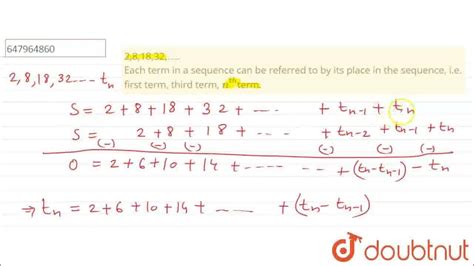 647964860
2,8,18,32,.....
Each term in a sequence can be referred to by its place in the sequence, i.e.
first term, third term, nth term.
2,8,18,32---- tn
S = 2+8+18+32+---- + tn-1 + tn
S = 2+8+18+---- + tn-2 + tn-1 + tn
(-) (-) (-) (-) (-) (-)
0 = 2+6+10+14+---- -- +(tn-tn-1) - tn
⇒ tn = 2+6+10+14+---- +(tn-tn-1)
doubtnut